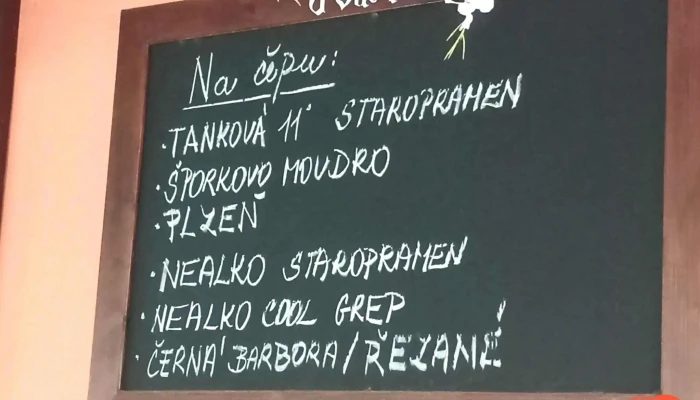 Na čepu:
· TANKOVÁ 11° STAROPRAMEN
· ŠPORKOVO MOUDRO
· PLZEŇ
· NEALKO STAROPRAMEN
· NEALKO COOL GREP
· ČERNÁ BARBORA / ŘEZANÉ